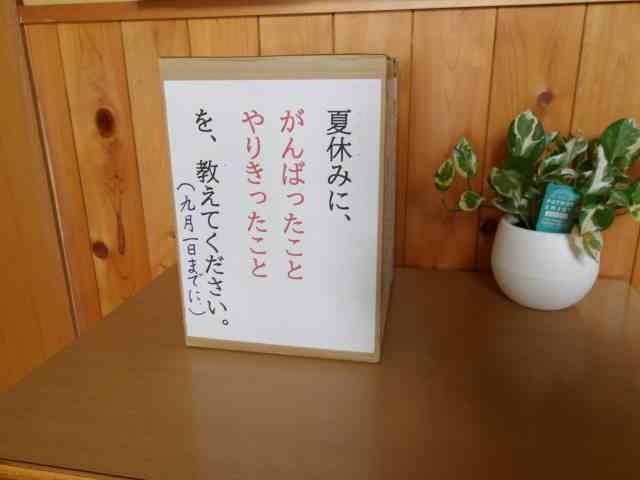 夏休みに、
がんばったこと
やりきったこと
を、教えてください。
(九月一日までに。)